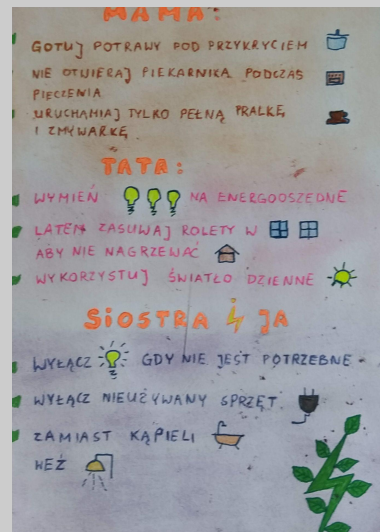 MAMA:
GOTUJ POTRAWY POD PRZYKRYCIEM
NIE OTWIERAJ PIEKARNIKA PODCZAS
PIECZENIA
URUCHAMIAJ TYLKO PEŁNĄ PRALKĘ
I ZMYWARKĘ
TATA:
WYMIEŃ NA ENERGOOSZĘDNE
LATEM ZASUWAJ ROLETY W
ABY NIE NAGRZEWAĆ
WYKORZYSTUJ ŚWIATŁO DZIENNE
SIOSTRA i JA
WYŁĄCZ GDY NIE JEST POTRZEBNE
WYŁĄCZ NIEUŻYWANY SPRZĘT
ZAMIAST KĄPIELI
WEŹ